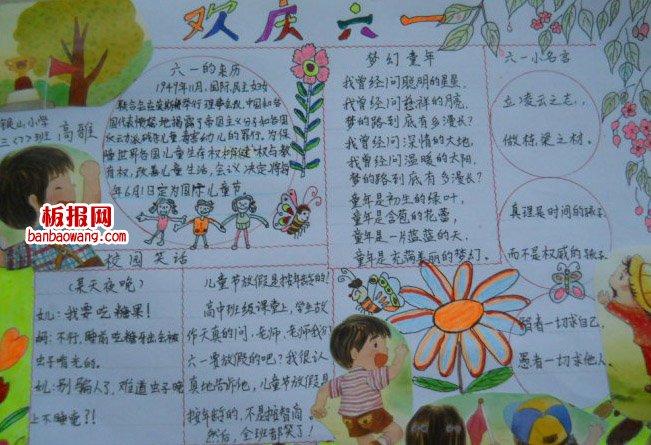 欢庆六一
六一的来历
1949年11月,国际民主妇女
联合会在莫斯科举行理事会议,中国和各
国代表愤怒地揭露了帝国主义分子和各国
反动派残害儿童毒害幼儿的罪行,为保
障世界各国儿童生存权保健权与教
育权,改善儿童生活,会议决定将每
年6月1日定为国际儿童节
小学
三(7)班
高雅
梦幻童年
我曾经问聪明的星星,
我曾经问慈祥的月亮,
梦的路到底有多漫长?
我曾经问深情的大地,
我曾经问温暖的太阳,
梦的路到底有多漫长?
童年是初生的绿叶,
童年是含苞的花蕾,
童年是一片蓝蓝的天,
童年是充满美丽的梦幻。
六一小名言
立凌云之志,
做栋梁之材。
真理是时间的孩子
而不是权威的孩子
智者一切求自己,
愚者一切求他人
板报网
banbaowang.com
校园笑话
(某天夜晚)
女儿:我要吃糖果!
妈:不行,睡前吃糖牙齿会被
虫子啃光的。
女儿:别骗人了,难道虫子晚
上不睡觉?!
儿童节放假是按年龄的!
高中班级课堂上,学生故
作天真的问,老师,老师我们
六一要放假的吧?我很认
真地告诉他,儿童节放假是
按年龄的,不是按智高
然后,全班都笑了!